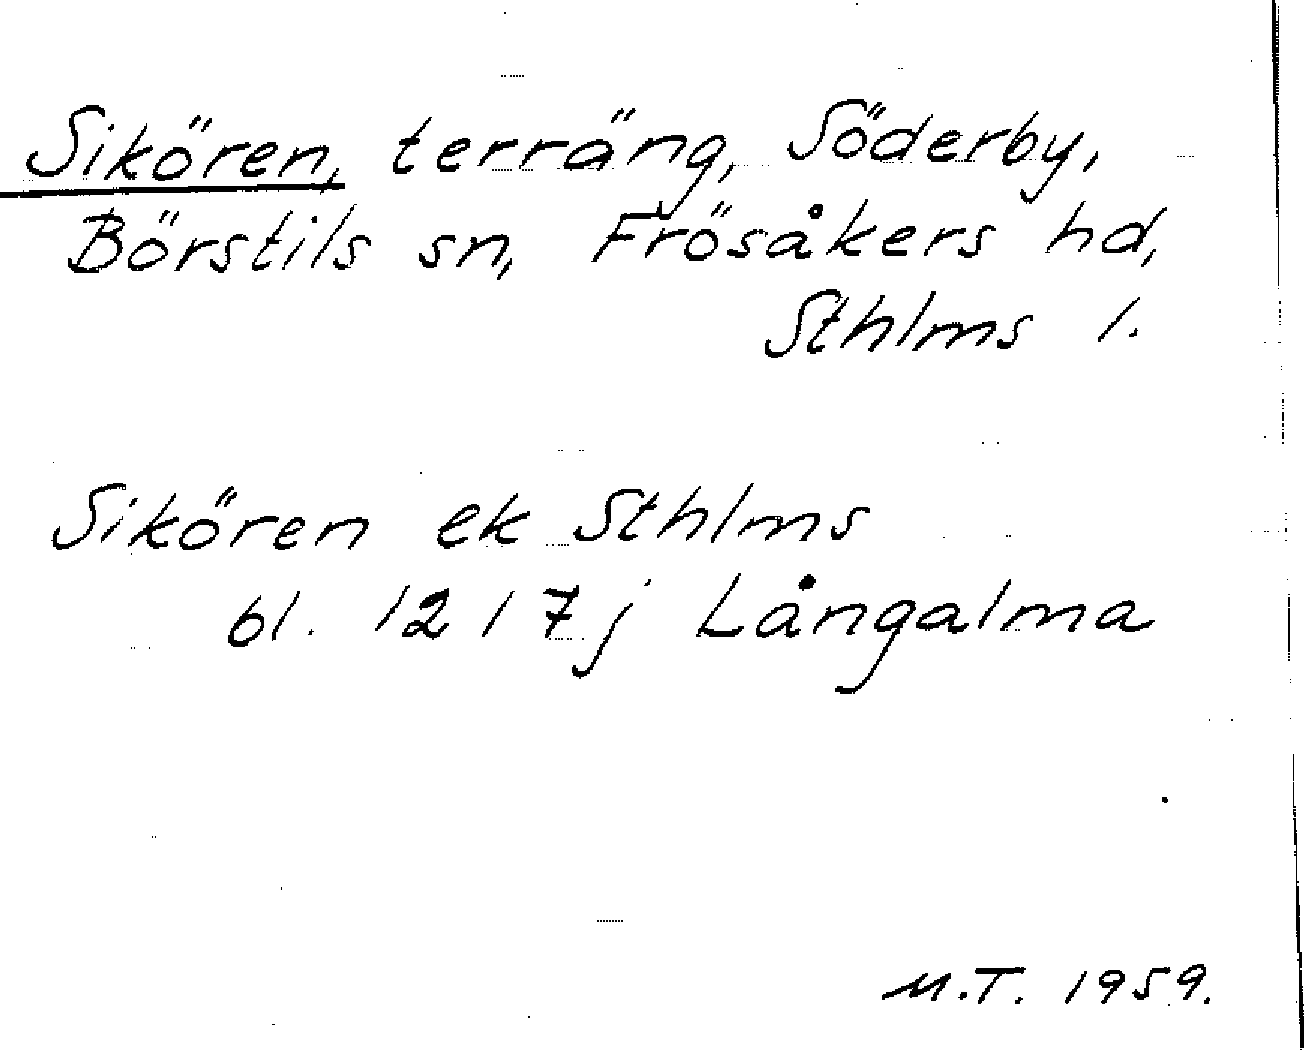 Sikören, terräng, Söderby,
Börstils sn, Frösåkers hd,
Sthlms l.
Sikören ek Sthlms
bl. 1217j Långalma
M.T. 1959.